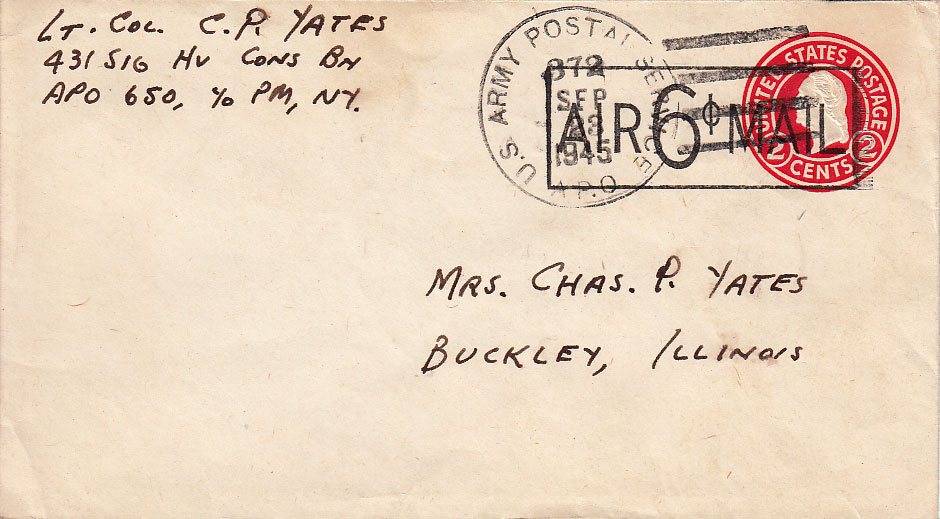 LT. COL. C. P. YATES
431 SIG HV CONS BN
APO 650, c/o PM, NY.
U.S. ARMY POSTAL SERVICE
372
SEP
23
1945
A.P.O.
AIR 6¢ MAIL
UNITED STATES POSTAGE
2 CENTS 2
MRS. CHAS. P. YATES
BUCKLEY, ILLINOIS